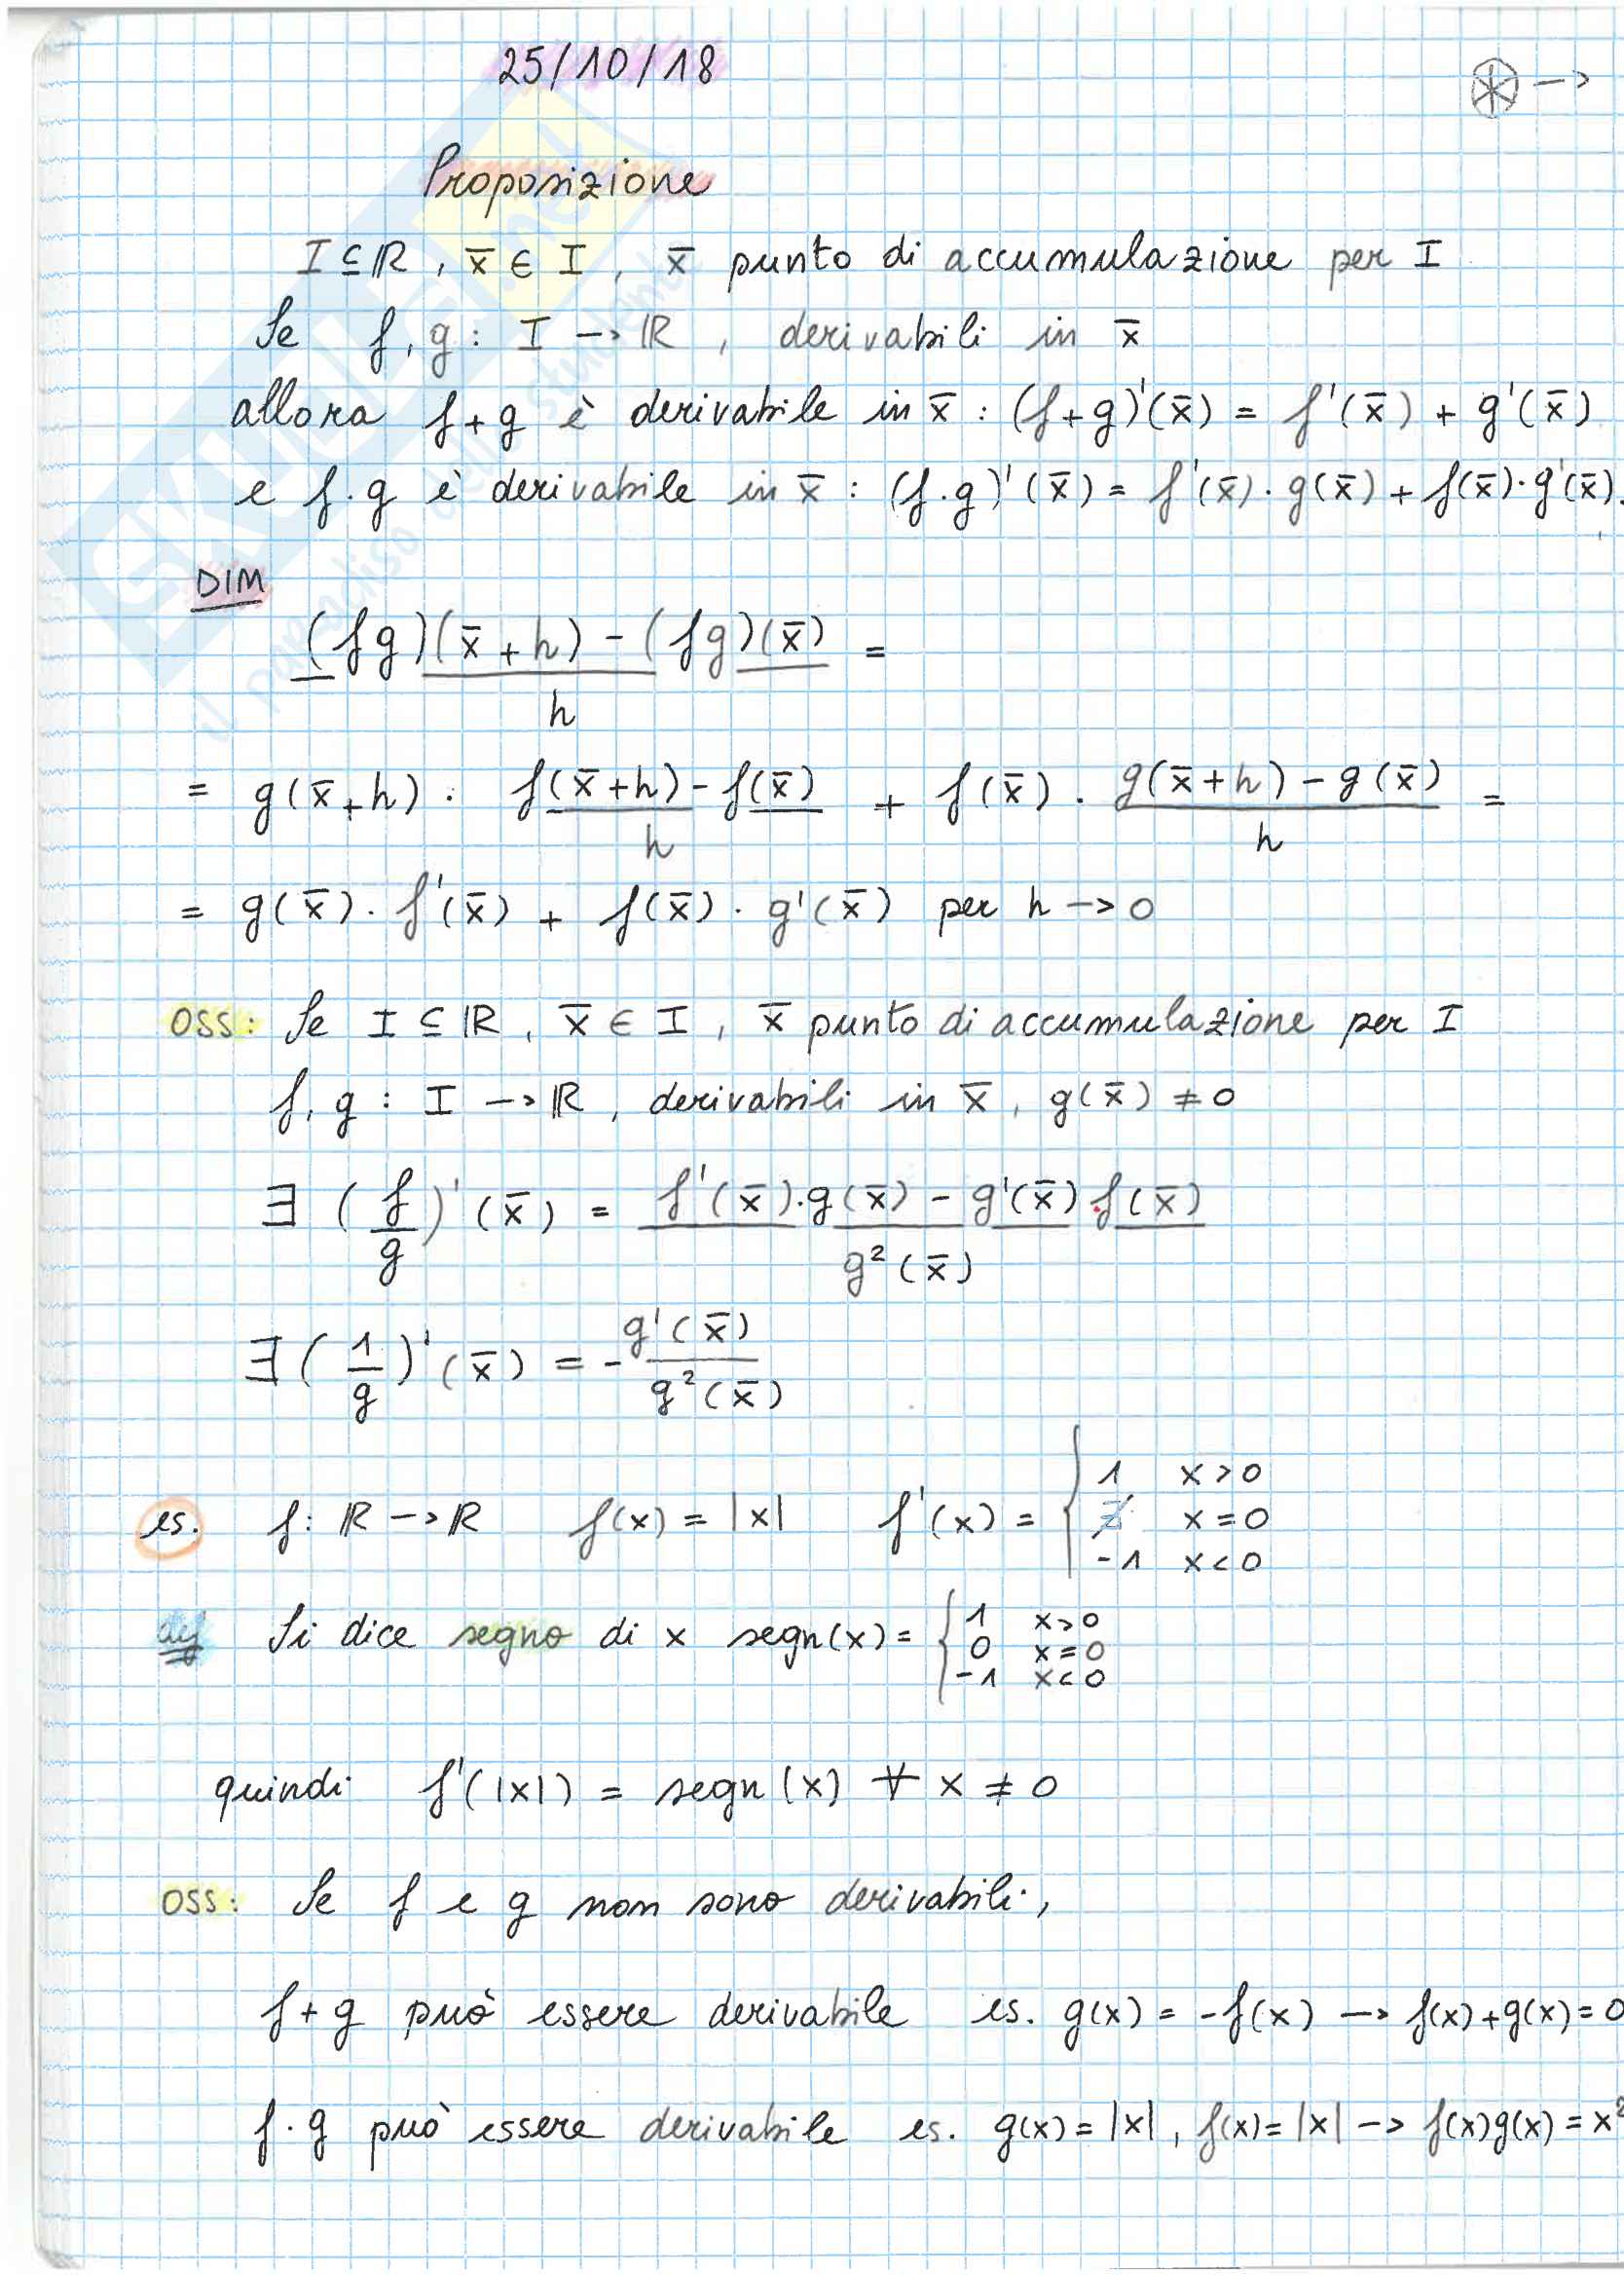 25/10/18
⊛ →
Proposizione
I ⊆ ℝ, x̄ ∈ I, x̄ punto di accumulazione per I
Se f, g : I → ℝ, derivabili in x̄
allora f+g è derivabile in x̄ : (f+g)'(x̄) = f'(x̄) + g'(x̄)
e f·g è derivabile in x̄ : (f·g)'(x̄) = f'(x̄)·g(x̄) + f(x̄)·g'(x̄).
DIM
((fg)(x̄+h) - (fg)(x̄))/h =
= g(x̄+h) · (f(x̄+h) - f(x̄))/h + f(x̄) · (g(x̄+h) - g(x̄))/h =
= g(x̄) · f'(x̄) + f(x̄) · g'(x̄) per h → 0
OSS: Se I ⊆ ℝ, x̄ ∈ I, x̄ punto di accumulazione per I
f, g : I → ℝ, derivabili in x̄, g(x̄) ≠ 0
∃ (f/g)'(x̄) = (f'(x̄)·g(x̄) - g'(x̄)·f(x̄))/g²(x̄)
∃ (1/g)'(x̄) = - g'(x̄)/g²(x̄)
es. f: ℝ → ℝ f(x) = |x| f'(x) = { 1 x>0
∄ x=0
-1 x<0
def Si dice segno di x segn(x) = { 1 x>0
0 x=0
-1 x<0
quindi f'(|x|) = segn(x) ∀ x ≠ 0
OSS: Se f e g non sono derivabili,
f+g può essere derivabile es. g(x) = -f(x) → f(x)+g(x)=0
f·g può essere derivabile es. g(x)=|x|, f(x)=|x| → f(x)g(x)=x²